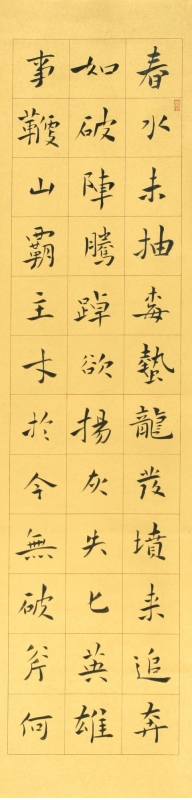 春水未抽毒蟄龍發墳来追奔
如破陣騰踔欲揚灰失匕英雄
事鞭山霸主木於今無破斧何